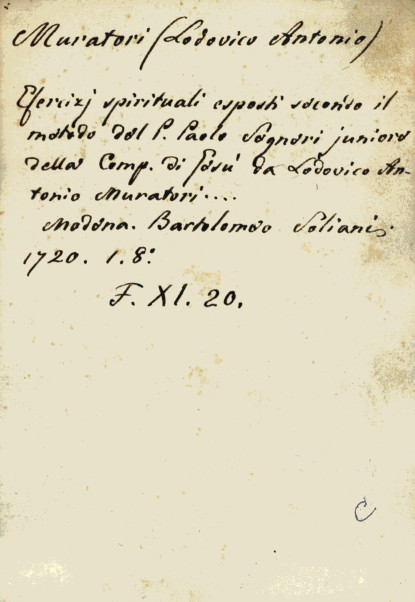 Muratori (Lodovico Antonio)
Esercizj spirituali esposti secondo il
metodo del P. Paolo Segneri juniore
della Comp. di Gesú da Lodovico An-
tonio Muratori....
Modena. Bartolomeo Soliani.
1720. 1. 8.º
F. XI. 20.
C